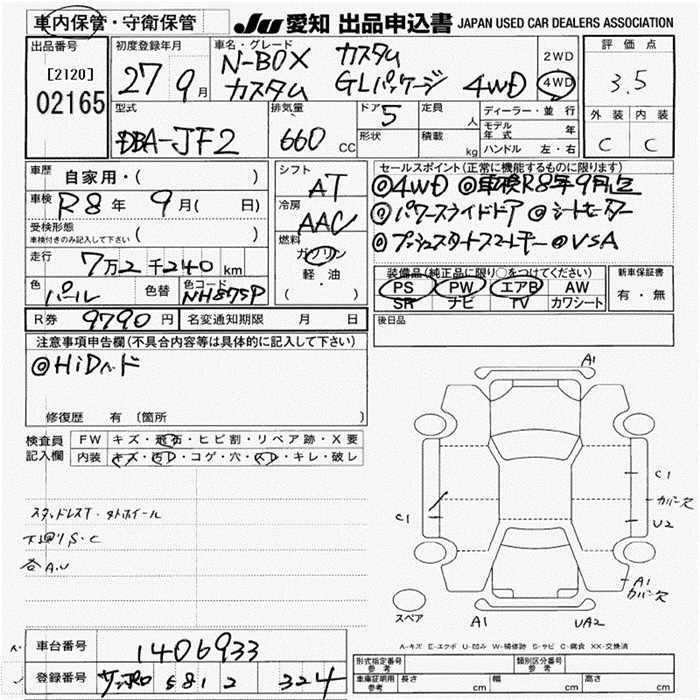 車内保管・守衛保管
JU 愛知 出品申込書 JAPAN USED CAR DEALERS ASSOCIATION
出品番号
[2120]
02165
初度登録年月
27 9月
車名・グレード
N-BOX カスタム
カスタム GLパッケージ 4WD
2WD
4WD
評価点
3.5
外装 内装
C C
型式
DBA-JF2
排気量
660 CC
ドア 5
形状
定員 人
積載 kg
ディーラー・並行
モデル年式 年
ハンドル 左・右
車歴 自家用・( )
車検 R8年 9月( 日)
受検形態
車検付きのみ記入して下さい ( )
走行 7万2千240km
色 パール 色替 色コード NH875P
シフト
AT
冷房
AAC
燃料
ガソリン
軽・油
( )
セールスポイント(正常に機能するものに限ります)
◎4WD ◎車検R8年9月迄
◎パワースライドドア ◎シートヒーター
◎プッシュスタートスマートキー ◎VSA
装備品(純正品に限り○をつけてください)
PS PW エアB AW
SR ナビ TV カワシート
新車保証書
有・無
R券 9790円 名変通知期限 月 日
後日品
注意事項申告欄(不具合内容等は具体的に記入して下さい)
◎HiDヘッド
修復歴 有 〔箇所
検査員記入欄
FW キズ・飛石・ヒビ割・リペア跡・X要
内装 キズ・汚レ・コゲ・穴・スレ・キレ・破レ
スタッドレスT・タトホイール
下廻りS・C
各A.U
A1
C1
カバー欠
U2
C1
A1
カバー欠
スペア
A1
UA2
A-キズ E-エクボ U-凹み W-補修跡 S-サビ C-腐食 XX-交換済
車台番号 1406933
登録番号 サッポロ 581 2 324
形式指定番号 参考
類別区分番号 参考
車庫証明用 参考 長さ cm 幅 cm 高さ cm